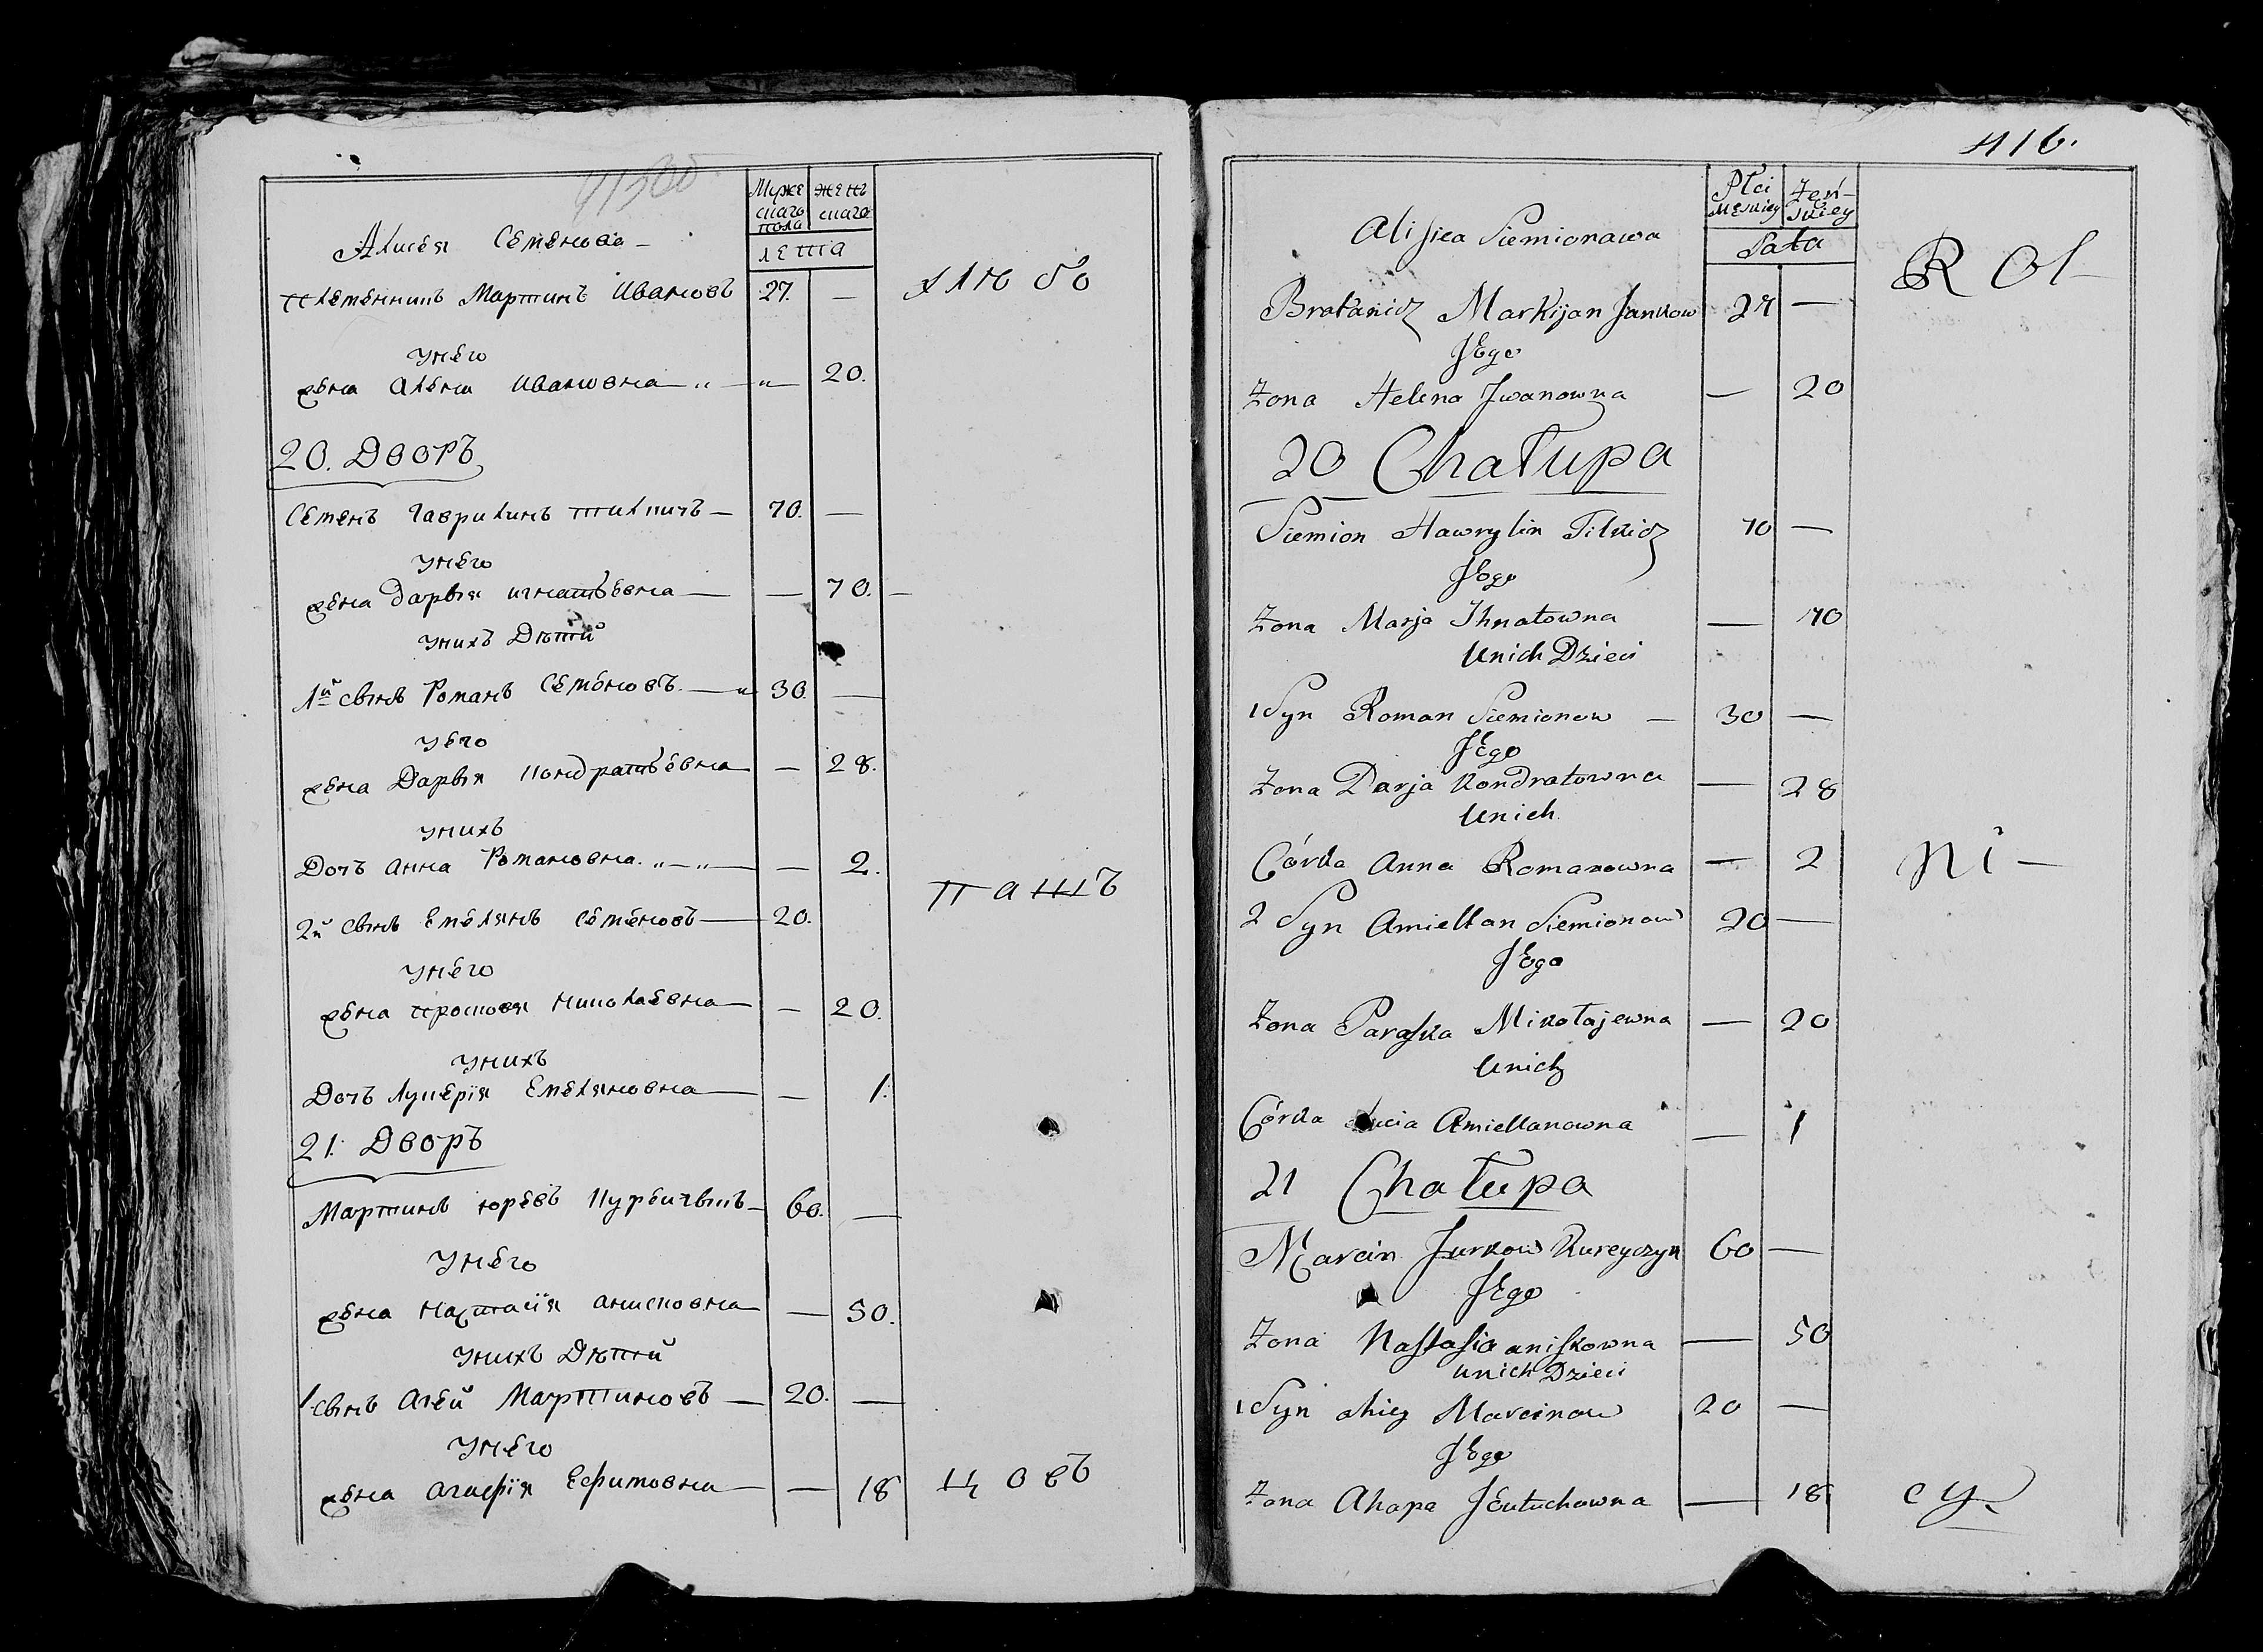 Мужескаго пола
женскаго
лета
Алисея Семенова —
хлѣбо
племенникъ Мартинъ Ивановъ 27. —
унего
жена Алена Ивановна — „ — „ — 20.
20. Дворъ
Семенъ Гаврилинъ тилкичъ — 70. —
унего
жена Дарья игнатьевна — — 70. —
унихъ Дѣтей
1й сынъ Романъ Семеновъ. — „ 30. —
уего
жена Дарья Кондратьевна — — 28.
унихъ
Дочъ Анна Романовна. „ — „ — — 2.
пашъ
2й сынъ Емелянъ Семеновъ — 20.
унего
жена просковя Николаевна — — 20.
унихъ
Дочъ Лукерія Емеляновна — — 1.
21. Дворъ
Мартинъ юревъ — 60. —
унего
жена настасія анисковна — — 50.
унихъ Дѣтей
1. сынъ Агей Мартиновъ — 20. —
унего
жена агафія Ефимовна — — 18
цовъ
416.
Płci Męskiey
Żeń-skiey
Lata
Alisiea Siemionawa
Rol-
Bratanicz Markijan Jankow 27 —
JEgo
Żona Helena Jwanowna — 20
20 Chałupa
Siemion Hawrylin Tilkicz 70 —
JEgo
Żona Marja Ihnatowna — 70
Unich Dzieci
1 Syn Roman Siemionow — 30 —
JEgo
Żona Darja Kondratowna — 28
Unich
Córka Anna Romanowna — 2
ni-
2 Syn Amiellan Siemionow 20 —
JEgo
Żona Paraska Mikołajewna — 20
Unich
Córka Amiellanowna — 1
21 Chałupa
Marcin Jurkow Kureyczyk 60 —
JEgo
Żona Nastasia aniskowna — 50
Unich Dzieci
1 Syn Ahiey Marcinow 20 —
JEgo
Żona Ahapa JEutuchowna — 18
cy